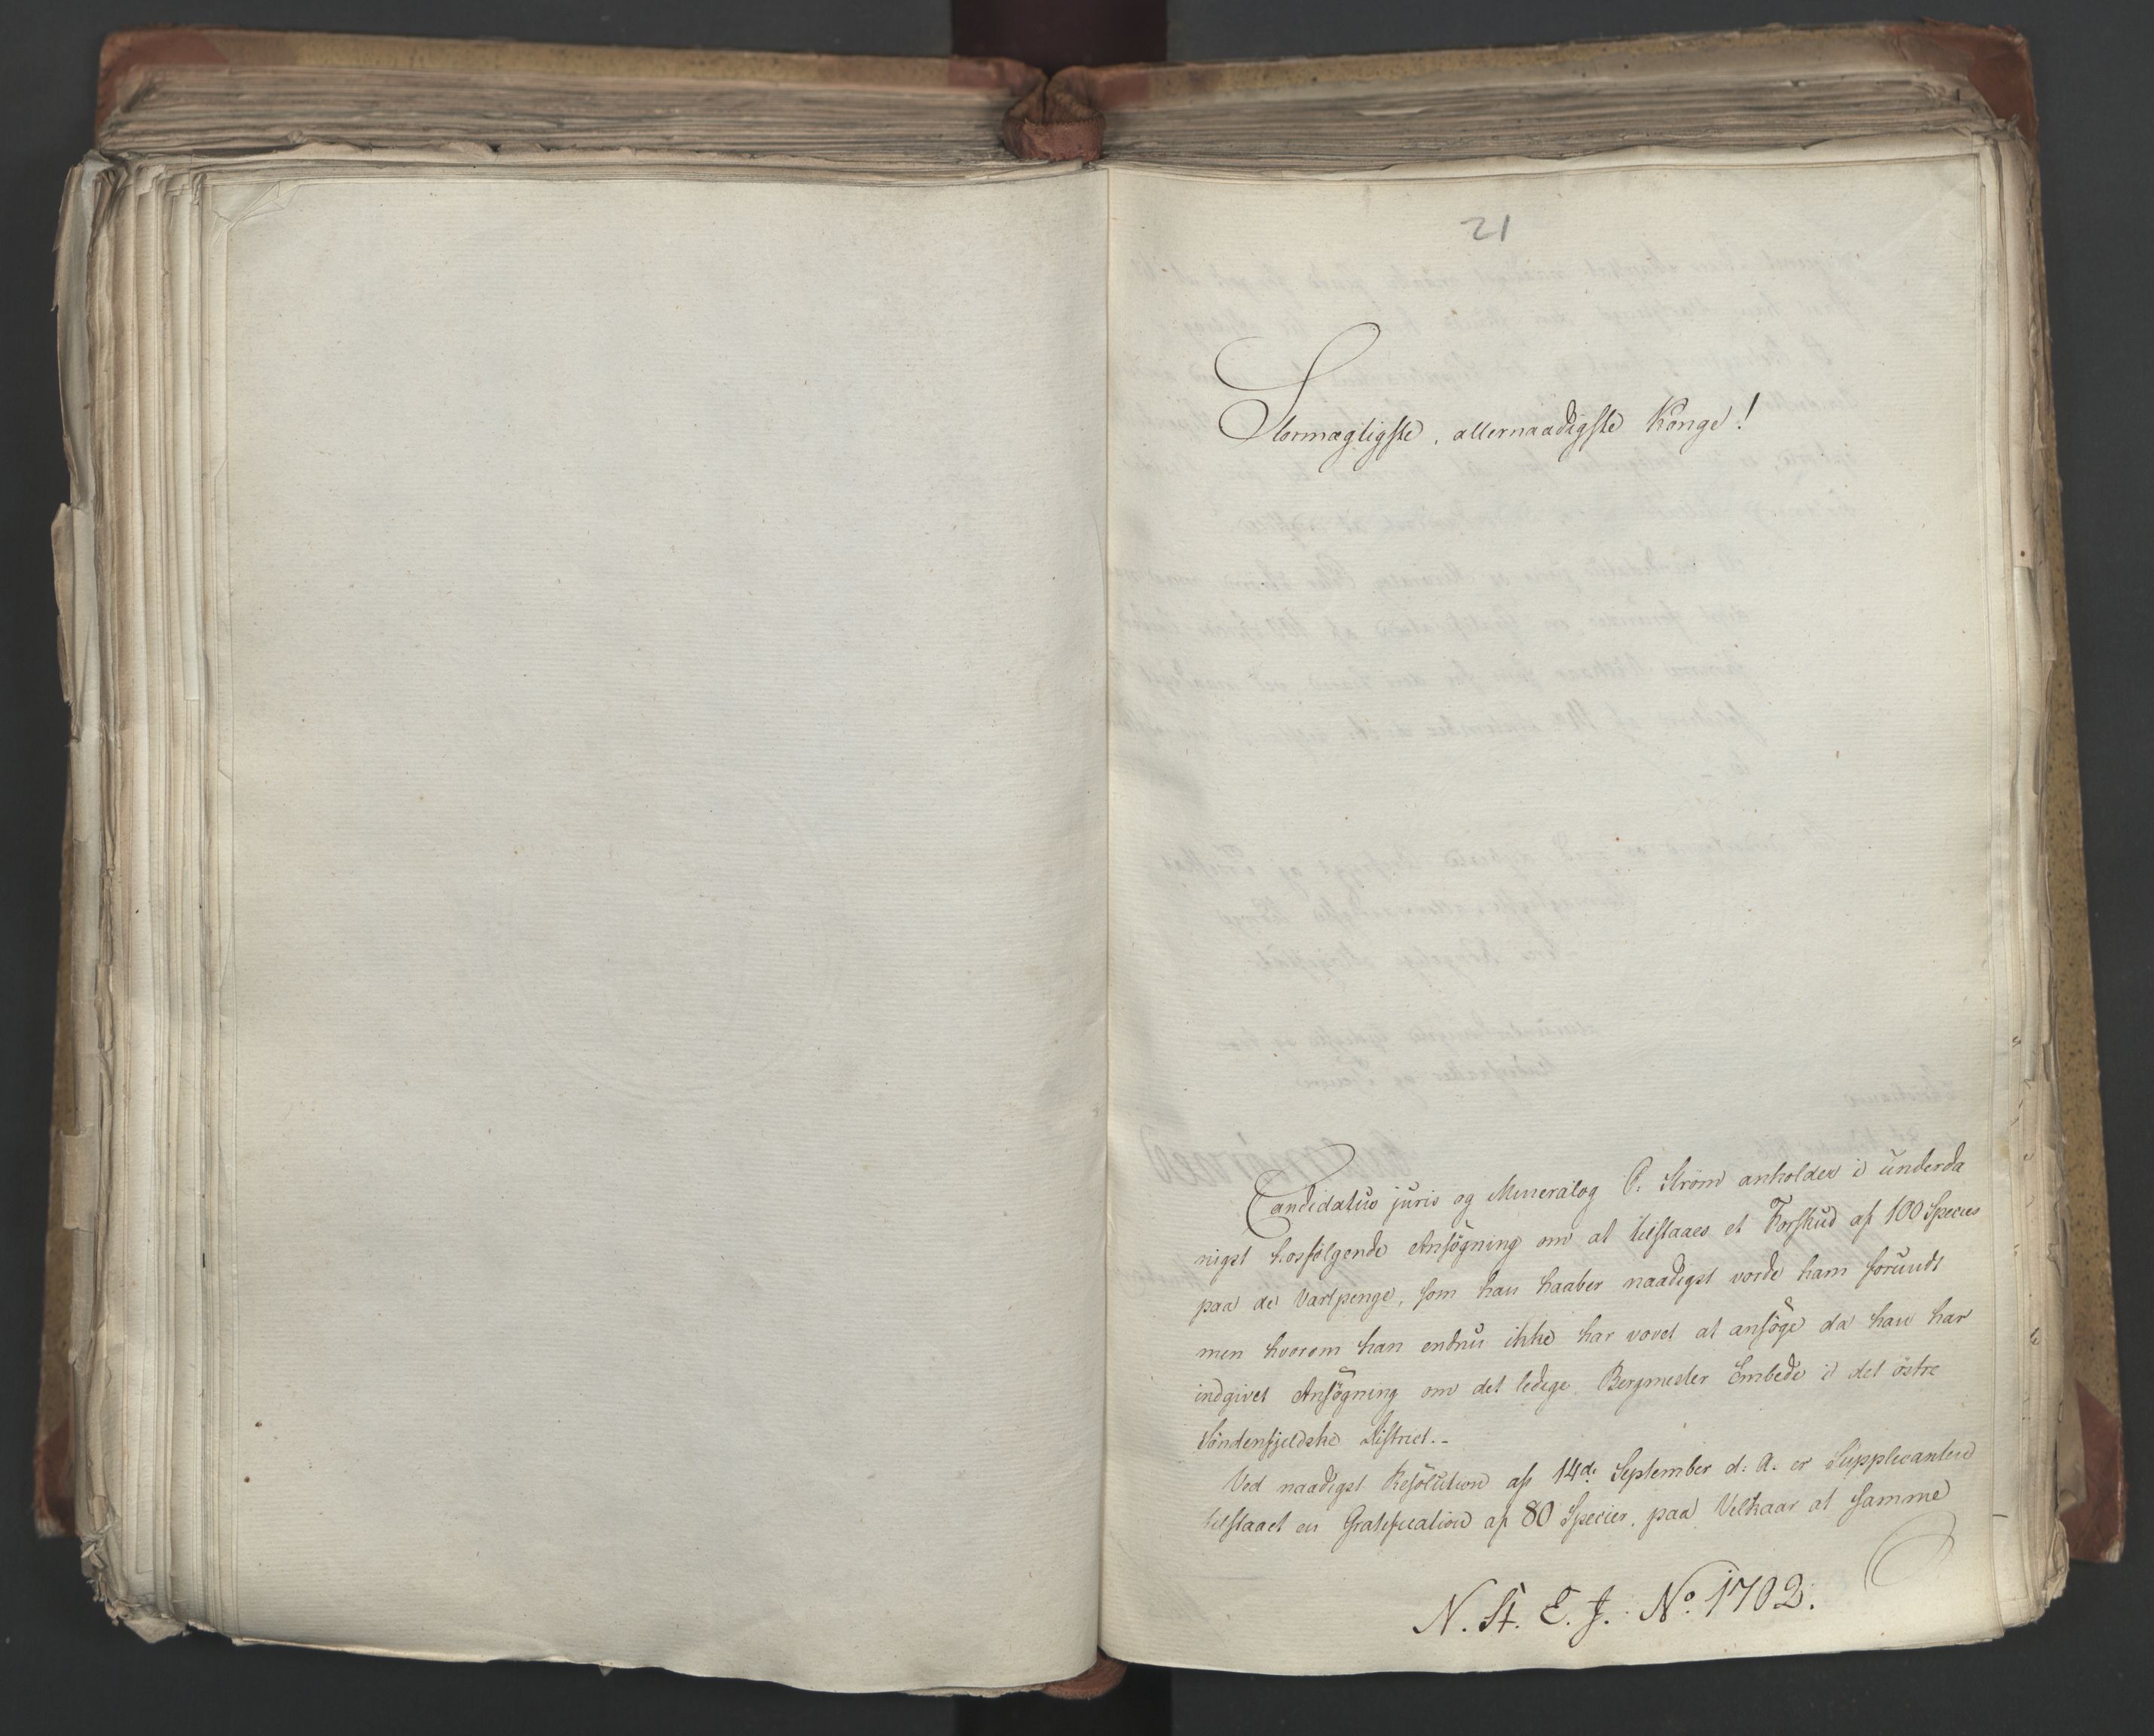 21
Stormægtigste, allernaadigste Konge!
Candidatus juris og Mineralog P. Strøm anholder i underda
nigst hosfølgende Ansøgning om at tilstaaes et Forskud af 100 Species
paa de Vartpenge, som han haaber naadigst vorde ham forundt
men hvorom han endnu ikke har vovet at ansøge da han har
indgivet Ansøgning om det ledige Bergmester Embede i det östre
Söndenfjeldske District.-
Ved naadigst Resolution af 14de September d: A. er Supplicanten
tilstaaet en Gratification af 80 Species, paa Vilkaar at samme
N. St. E. J. No. 1702.